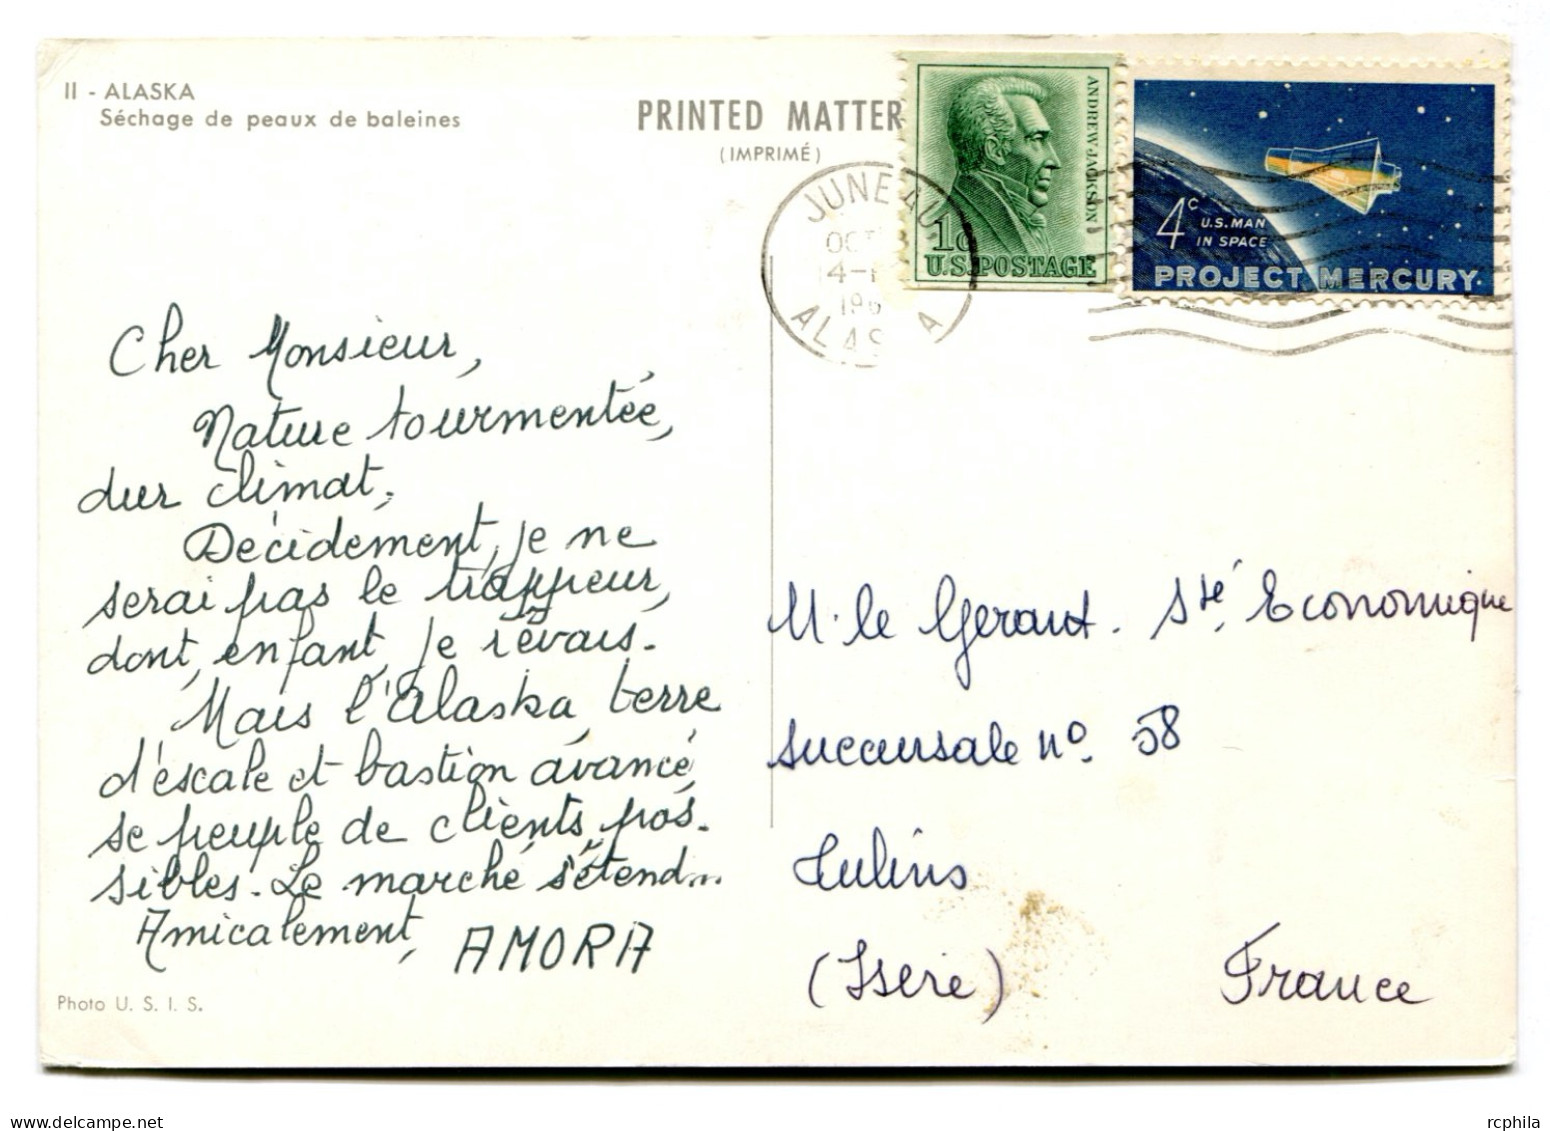 II - ALASKA
Séchage de peaux de baleines
PRINTED MATTER
(IMPRIMÉ)
ANDREW JACKSON
1c
U.S. POSTAGE
4c
U.S. MAN
IN SPACE
PROJECT MERCURY
JUNEAU,
ALASKA
Cher Monsieur,
Nature tourmentée,
dur climat.
Décidement, je ne
serai pas le trappeur,
dont, enfant, je rêvais.
Mais l'Alaska, terre
d'escale et bastion avancé,
se peuple de clients pos-
sibles. Le marché s'étend...
Amicalement,
AMORA
Photo U. S. I. S.
M. le Gerant. Sté. Economique
succursale n° 58
Tulins
(Isere)
France
rcphila